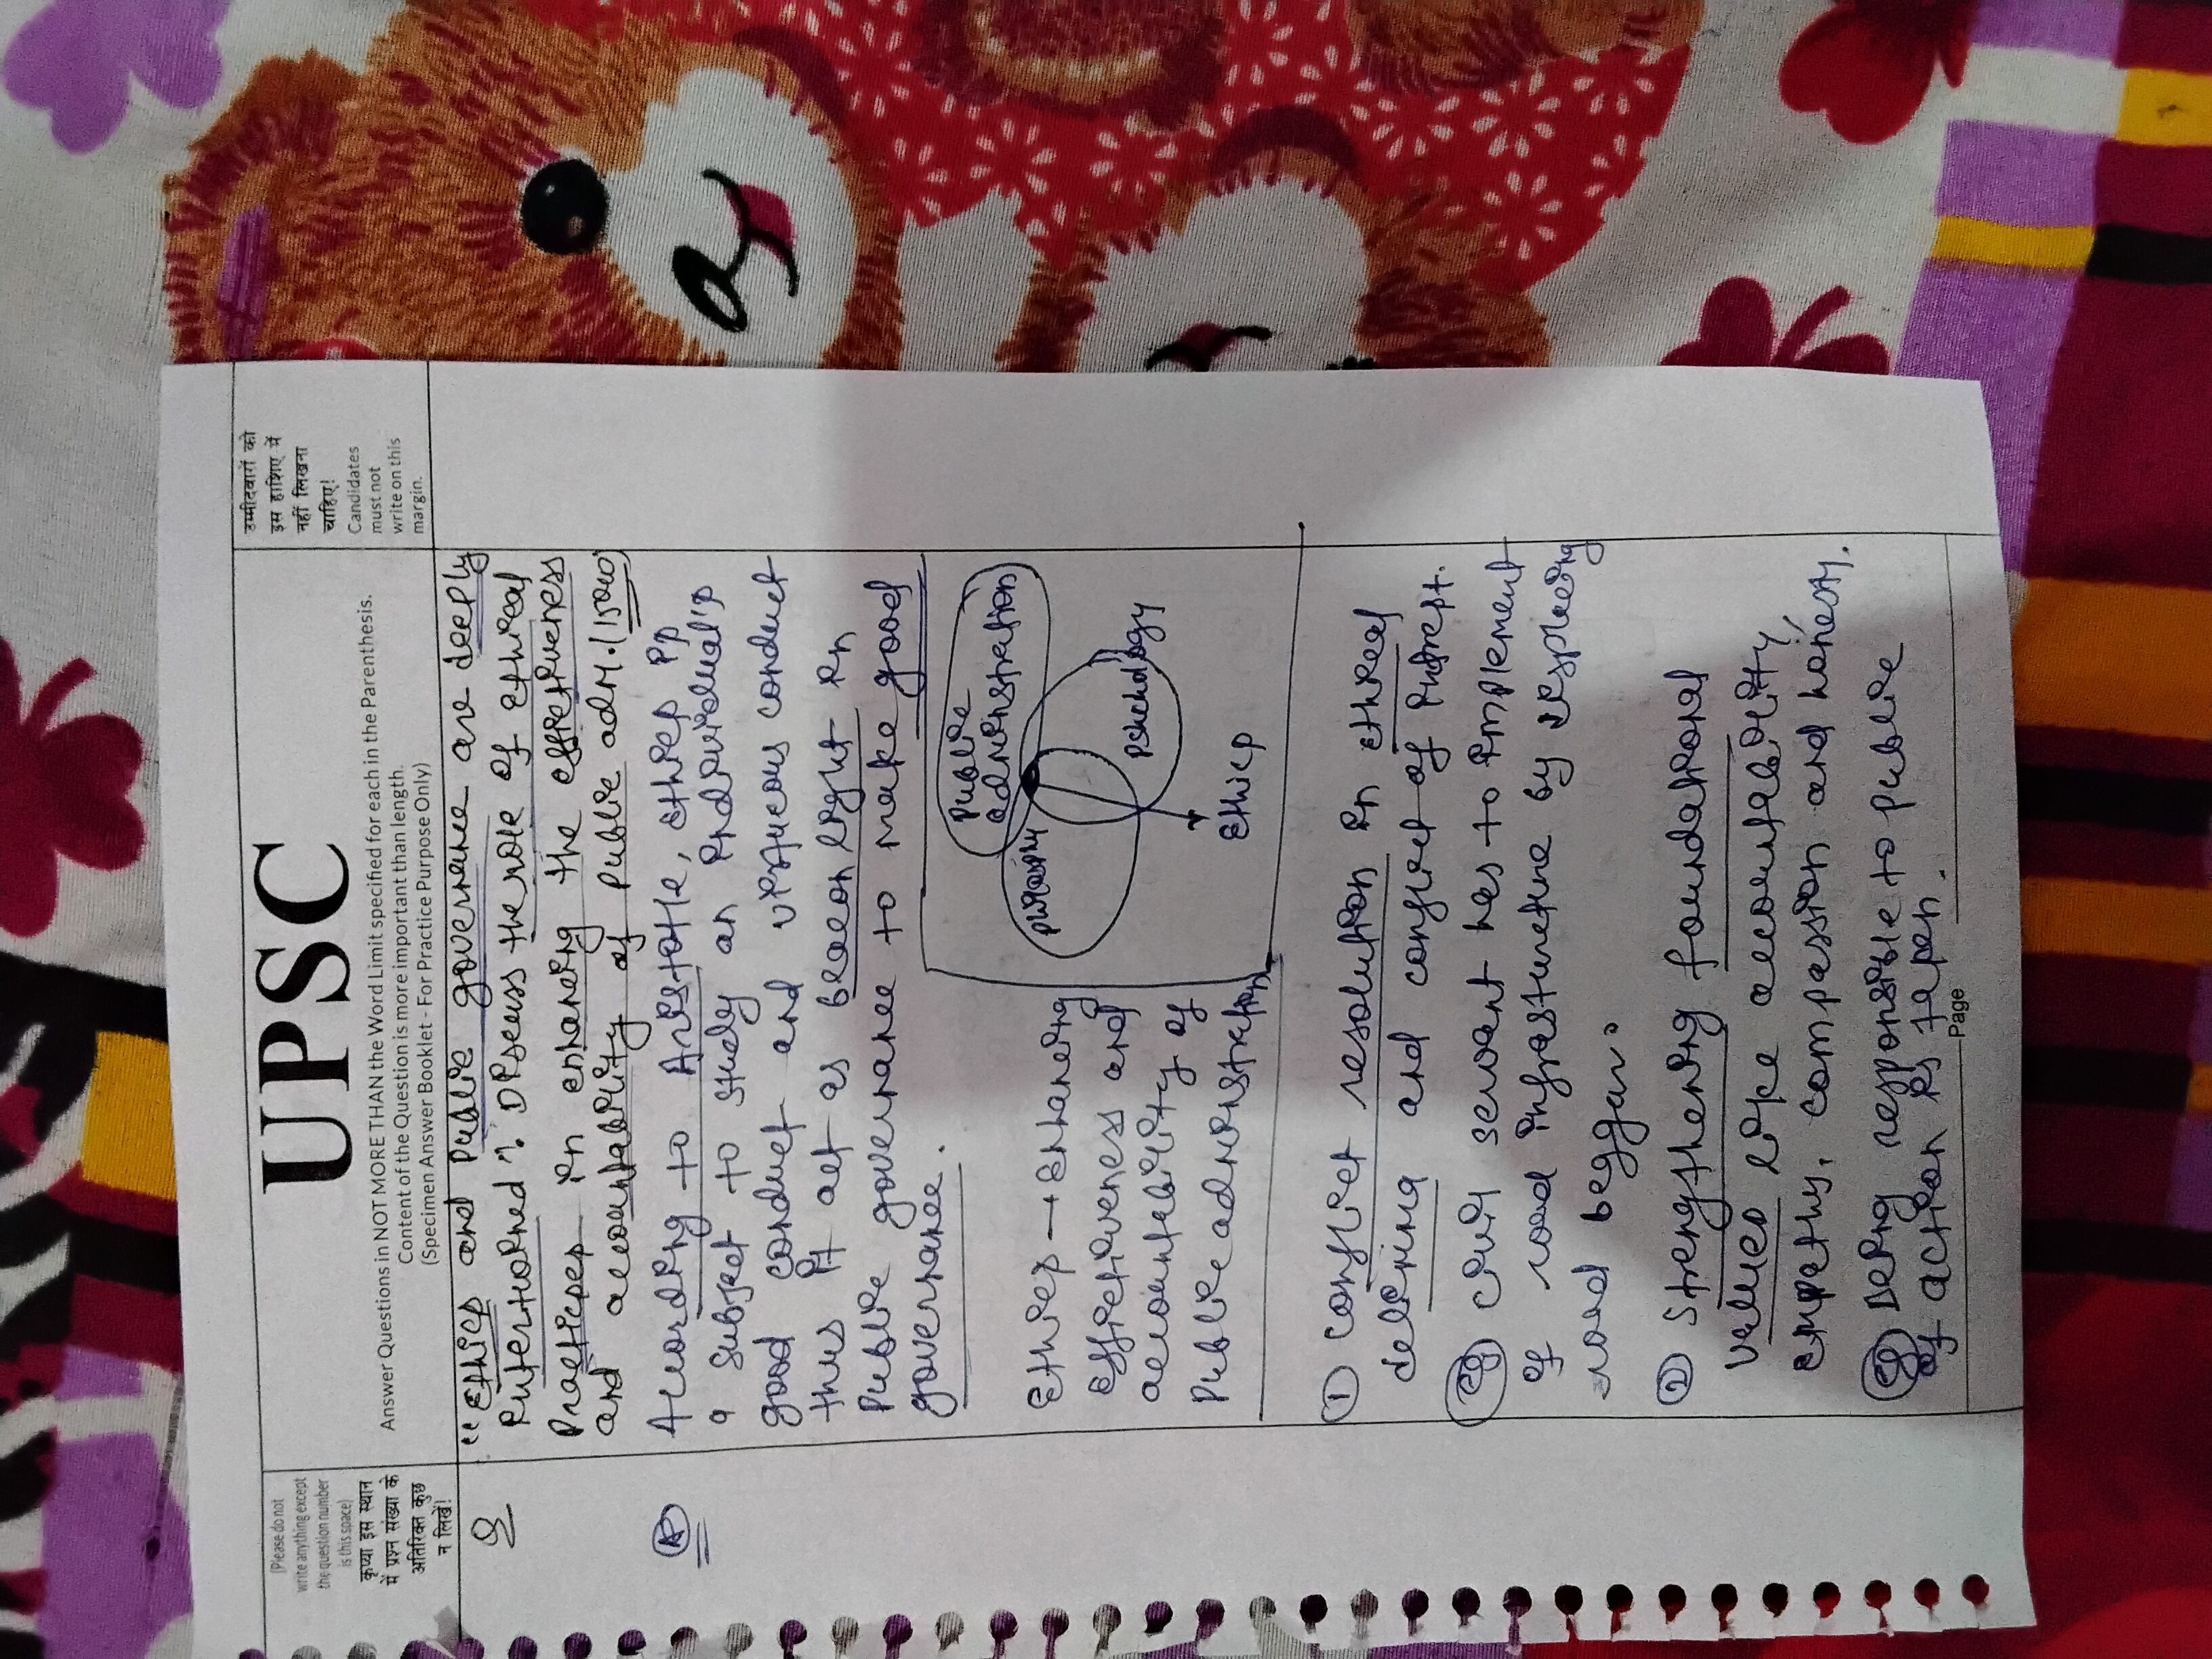 (Please do not
write anything except
the question number
is this space)
कृप्या इस स्थान
में प्रश्न संख्या के
अतिरिक्त कुछ
न लिखें!
UPSC
Answer Questions in NOT MORE THAN the Word Limit specified for each in the Parenthesis.
Content of the Question is more important than length.
(Specimen Answer Booklet - For Practice Purpose Only)
उम्मीदवारों को
इस हाशिए में
नहीं लिखना
चाहिए!
Candidates
must not
write on this
margin.
Q "Ethics and Public governance are deeply
intertwined". Discuss the role of ethical
Practices in enhancing the effectiveness
and accountability of public adm. (150w)
A According to Aristotle, ethics is
a subject to study an individual's
good conduct and virtuous conduct
thus it act as beacon light in
Public governance to make good
governance.
Ethics → Enhancing
effectiveness and
accountability of
Public administration
Public
administration
Philosophy
Psychology
Ethics
① Conflict resolution in ethical
delimma and conflict of interest.
eg civil servant has to implement
of road infrastructure by displacing
road beggars.
② Strengthening foundational
values like accountability,
empathy, compassion and honesty.
eg Being responsible to public
if action is taken.
Page